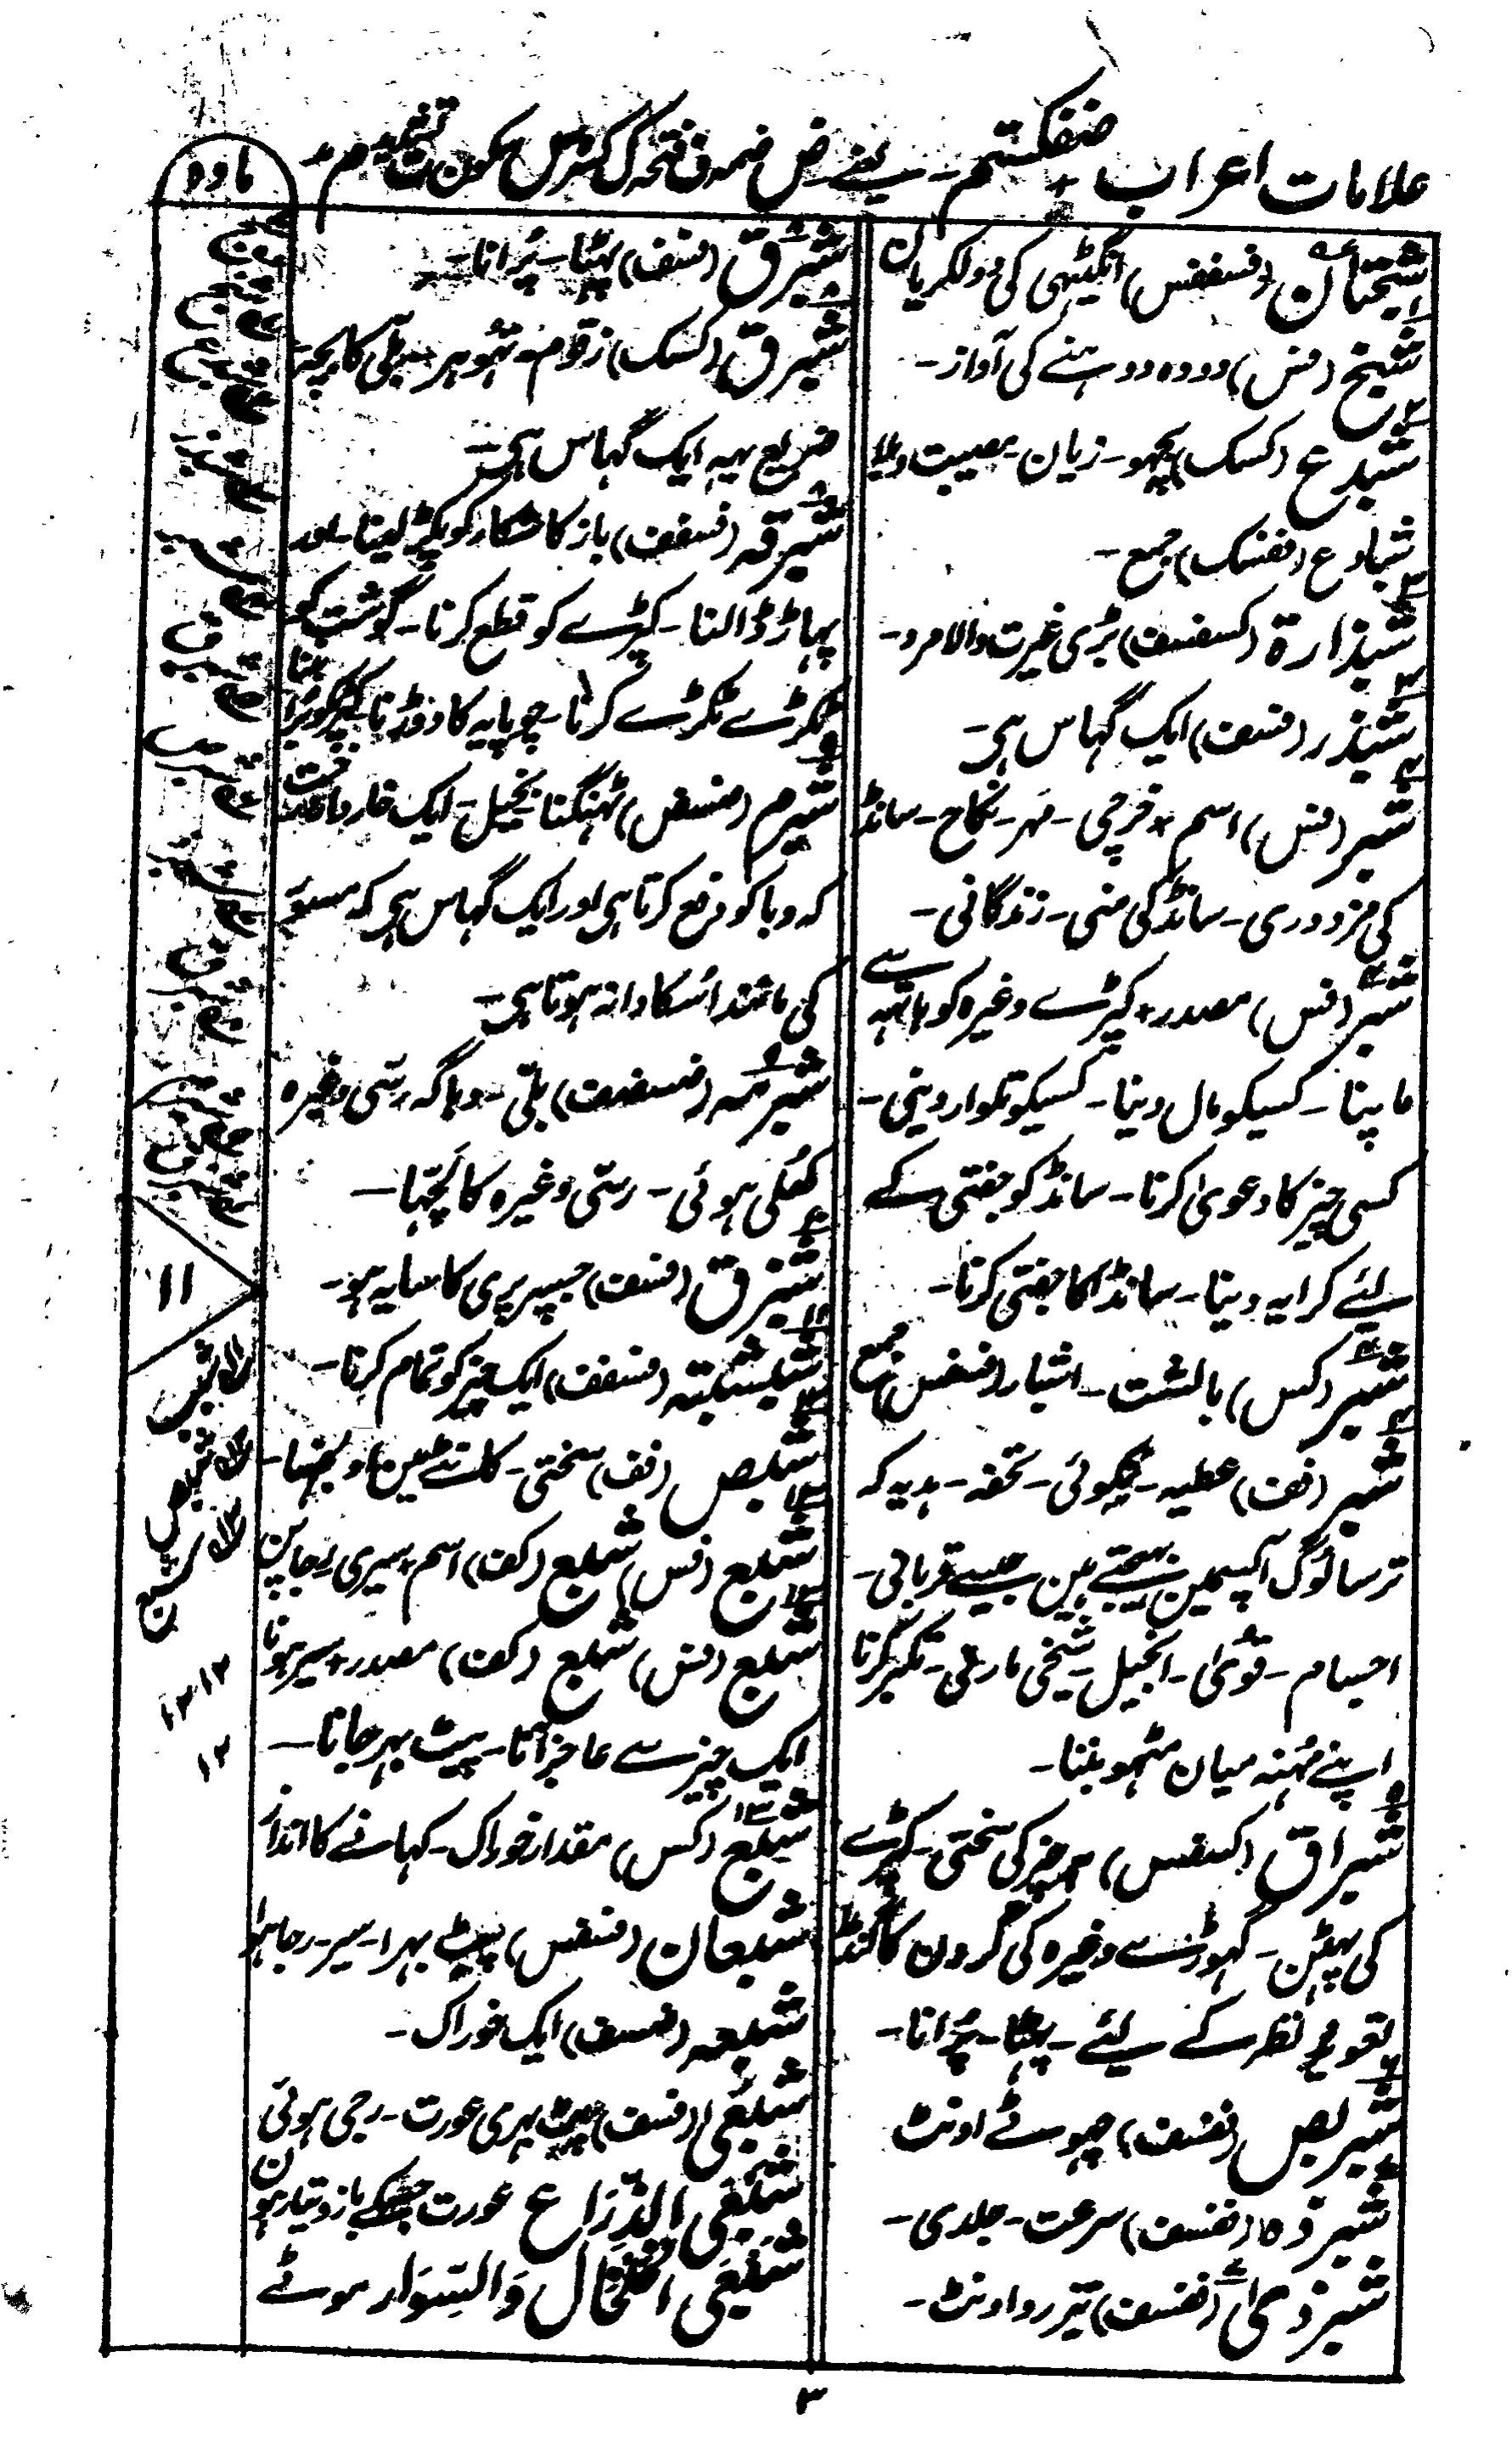 علامات اعراب ضفکستم - یعنے ض ضمہ ف فتحہ ک کسر س سکون ت تشدید م مد
مادہ
شبحتان (فسففس) انگیٹھی کی دو لکریان
شبخ (فس) دودہ دوہنے کی آواز-
شبدع (کسک) بچھو- زیان- مصیبت و بلا
شبادع (ففسک) جمع-
شبذارۃ (کسفسف) بڑی غیرت والا مرد-
شبذر (فسف) ایک گہاس ہی-
شبر (فس) اسم + فرجی- مَہر- نکاح- سانڈ
کی مزدوری- سانڈ کی منی- زندگانی-
شبر (فس) مصدر + کپڑے وغیرہ کو ہاتہہ سے
ماپنا- کسیکو مال دینا- کسیکو تلوار دینی-
کسی چیز کا دعویٰ کرنا- سانڈ کو جفتی کے
لئے کرایہ دینا- سانڈ کا جفتی کرنا-
شبر (کس) بالشت- اشبار (فسفس) جمع
شبر (فف) عطیہ- نیکوئی- تحفہ- ہدیہ کہ
ترسا لوگ آپسمین بہیجتے ہین جیسے قربانی-
اجسام- قویٰ- انجیل- شیخی مارنی- تکبر کرنا
اپنے مُنہ میان مٹہو بننا-
شبراق (کسفس) ہر چیز کی سختی- کپڑے
کی پہٹن- گہوڑے وغیرہ کی گردن کا گنڈا
تعویذ نظر کے لئے- پہٹا- پُرانا-
شبربص (ففسف) چہوٹے اونٹ
شبرذہ (ففسف) سرعت- جلدی-
شبرذیٰ (ففسف) تیز رو اونٹ-
شبرق (فسف) پہٹا- پُرانا-
شبرق (کسک) زقوم- تہوہر- بلی کا بچہ-
ضریع یہہ ایک گہاس ہی-
شبرقہ (فسفف) باز کا شکار کو پکڑ لینا- اور
پہاڑ ڈالنا- کپڑے کو قطع کرنا- گوشت کو
ٹکڑے ٹکڑے کرنا- چوپایہ کا دوڑنا- کپڑے کو بُرا بننا
شبرم (ضسض) ٹہنگنا- بخیل- ایک خاردار درخت
کہ وبا کو دفع کرتا ہی اور ایک گہاس ہی کہ مسور
کی مانند اُسکا دانہ ہوتا ہی-
شبرمہ (ضسضف) بلی- دہاگہ رسّی وغیرہ
کھُلی ہوئی- رسّی وغیرہ کا لُچّہا-
شبزق (فسف) جسپر پری کا سایہ ہو-
شبشبتہ (فسفف) ایک چیز کو تمام کرنا-
شبص (فف) سختی- کانٹے مین اولجہنا-
شبع (فس) شبع (کف) اسم + سیری رجاپن
شبع (فس) شبع (کف) مصدر + سیر ہونا
ایک چیز سے عاجز آنا- پیٹ بہر جانا-
شبع (کس) مقدار خوراک- کہانے کا انداز
شبعان (فسفس) پیٹ بہرا- سیر- رجا ہوا
شبعہ (ضسف) ایک خوراک-
شبعیٰ (فسف) پیٹ بہری عورت- رجی ہوئی
شَبْعَی الذِّرَاع عورت جسکے بازو تیار ہون
شَبْعَی الخَلْخَال وَالسِّوَار موٹے
۱۱
شبص
شبع
۱۲ ۱۲
۱۲
۳